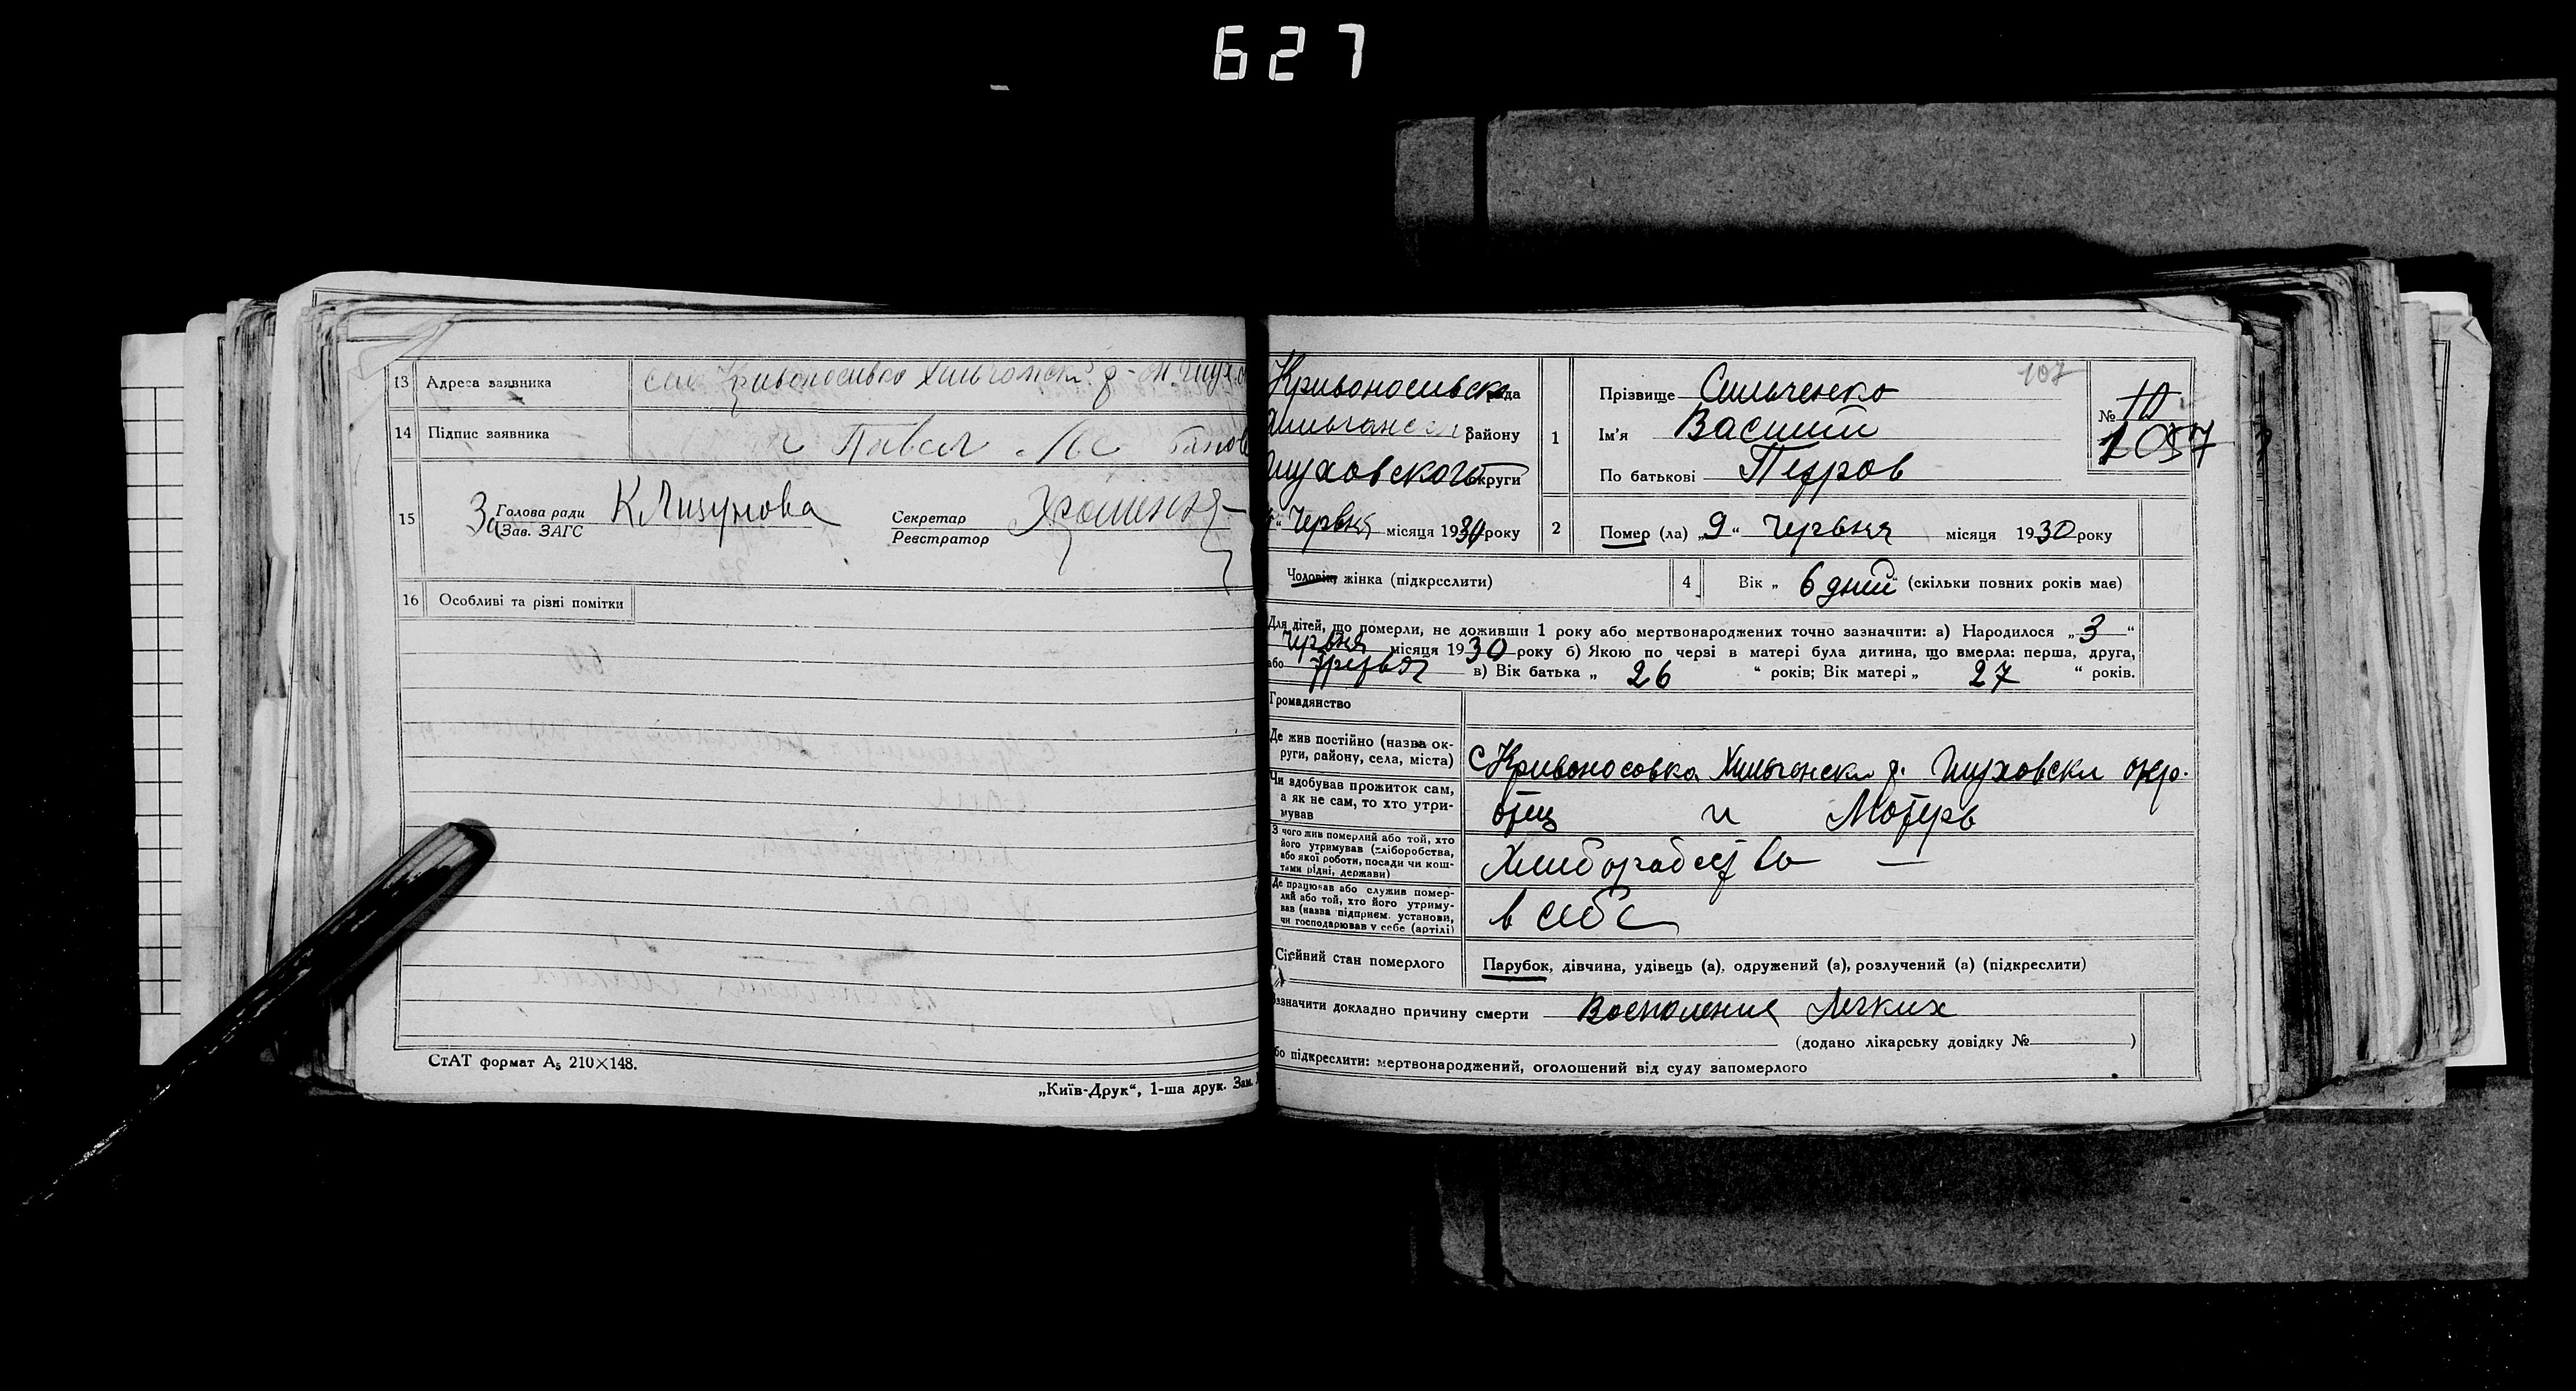 627
13 Адреса заявника село Кривоносивко Хильчанск. р-н. Глухо
14 Підпис заявника Павел
15 За Голова ради К Лизунова Секретар
Зав. ЗАГС Реєстратор
16 Особливі та різні помітки
СтАТ формат А5 210×148.
„Київ-Друк“, 1-ша друк. Зам.
Кривоносивска рада
району
Глуховского округи
Червня місяця 1930 року
107
1 Прізвище Сильченко
Ім'я Василий
По батькові Петров
№ 10
1057
2 Помер (ла) „9“ червня місяця 1930 року
Чоловік, жінка (підкреслити)
4 Вік „ 6 дний “ (скільки повних років має)
Для дітей, що померли, не доживши 1 року або мертвонароджених точно зазначити: а) Народилося „3“
червня місяця 1930 року б) Якою по черзі в матері була дитина, що вмерла: перша, друга,
або третья в) Вік батька „ 26 “ років; Вік матері „ 27 “ років.
Громадянство
Де жив постійно (назва ок-
руги, району, села, міста) с Кривоносовка Хильчанск р. Глуховск окр.
Чи здобував прожиток сам,
а як не сам, то хто утри-
мував отец и Мотерь
З чого жив померлий або той, хто
його утримував (хліборобства,
або якої роботи, посади чи кош-
тами рідні, держави) Хлиборабство —
Де працював або служив помер-
лий або той, хто його утриму-
вав (назва підприєм. установи,
чи господарював у себе (артілі) в себе
Сімейний стан померлого Парубок, дівчина, удівець (а), одружений (а), розлучений (а) (підкреслити)
Зазначити докладно причину смерти Воспаление Легких
(додано лікарську довідку № )
або підкреслити: мертвонароджений, оголошений від суду запомерлого